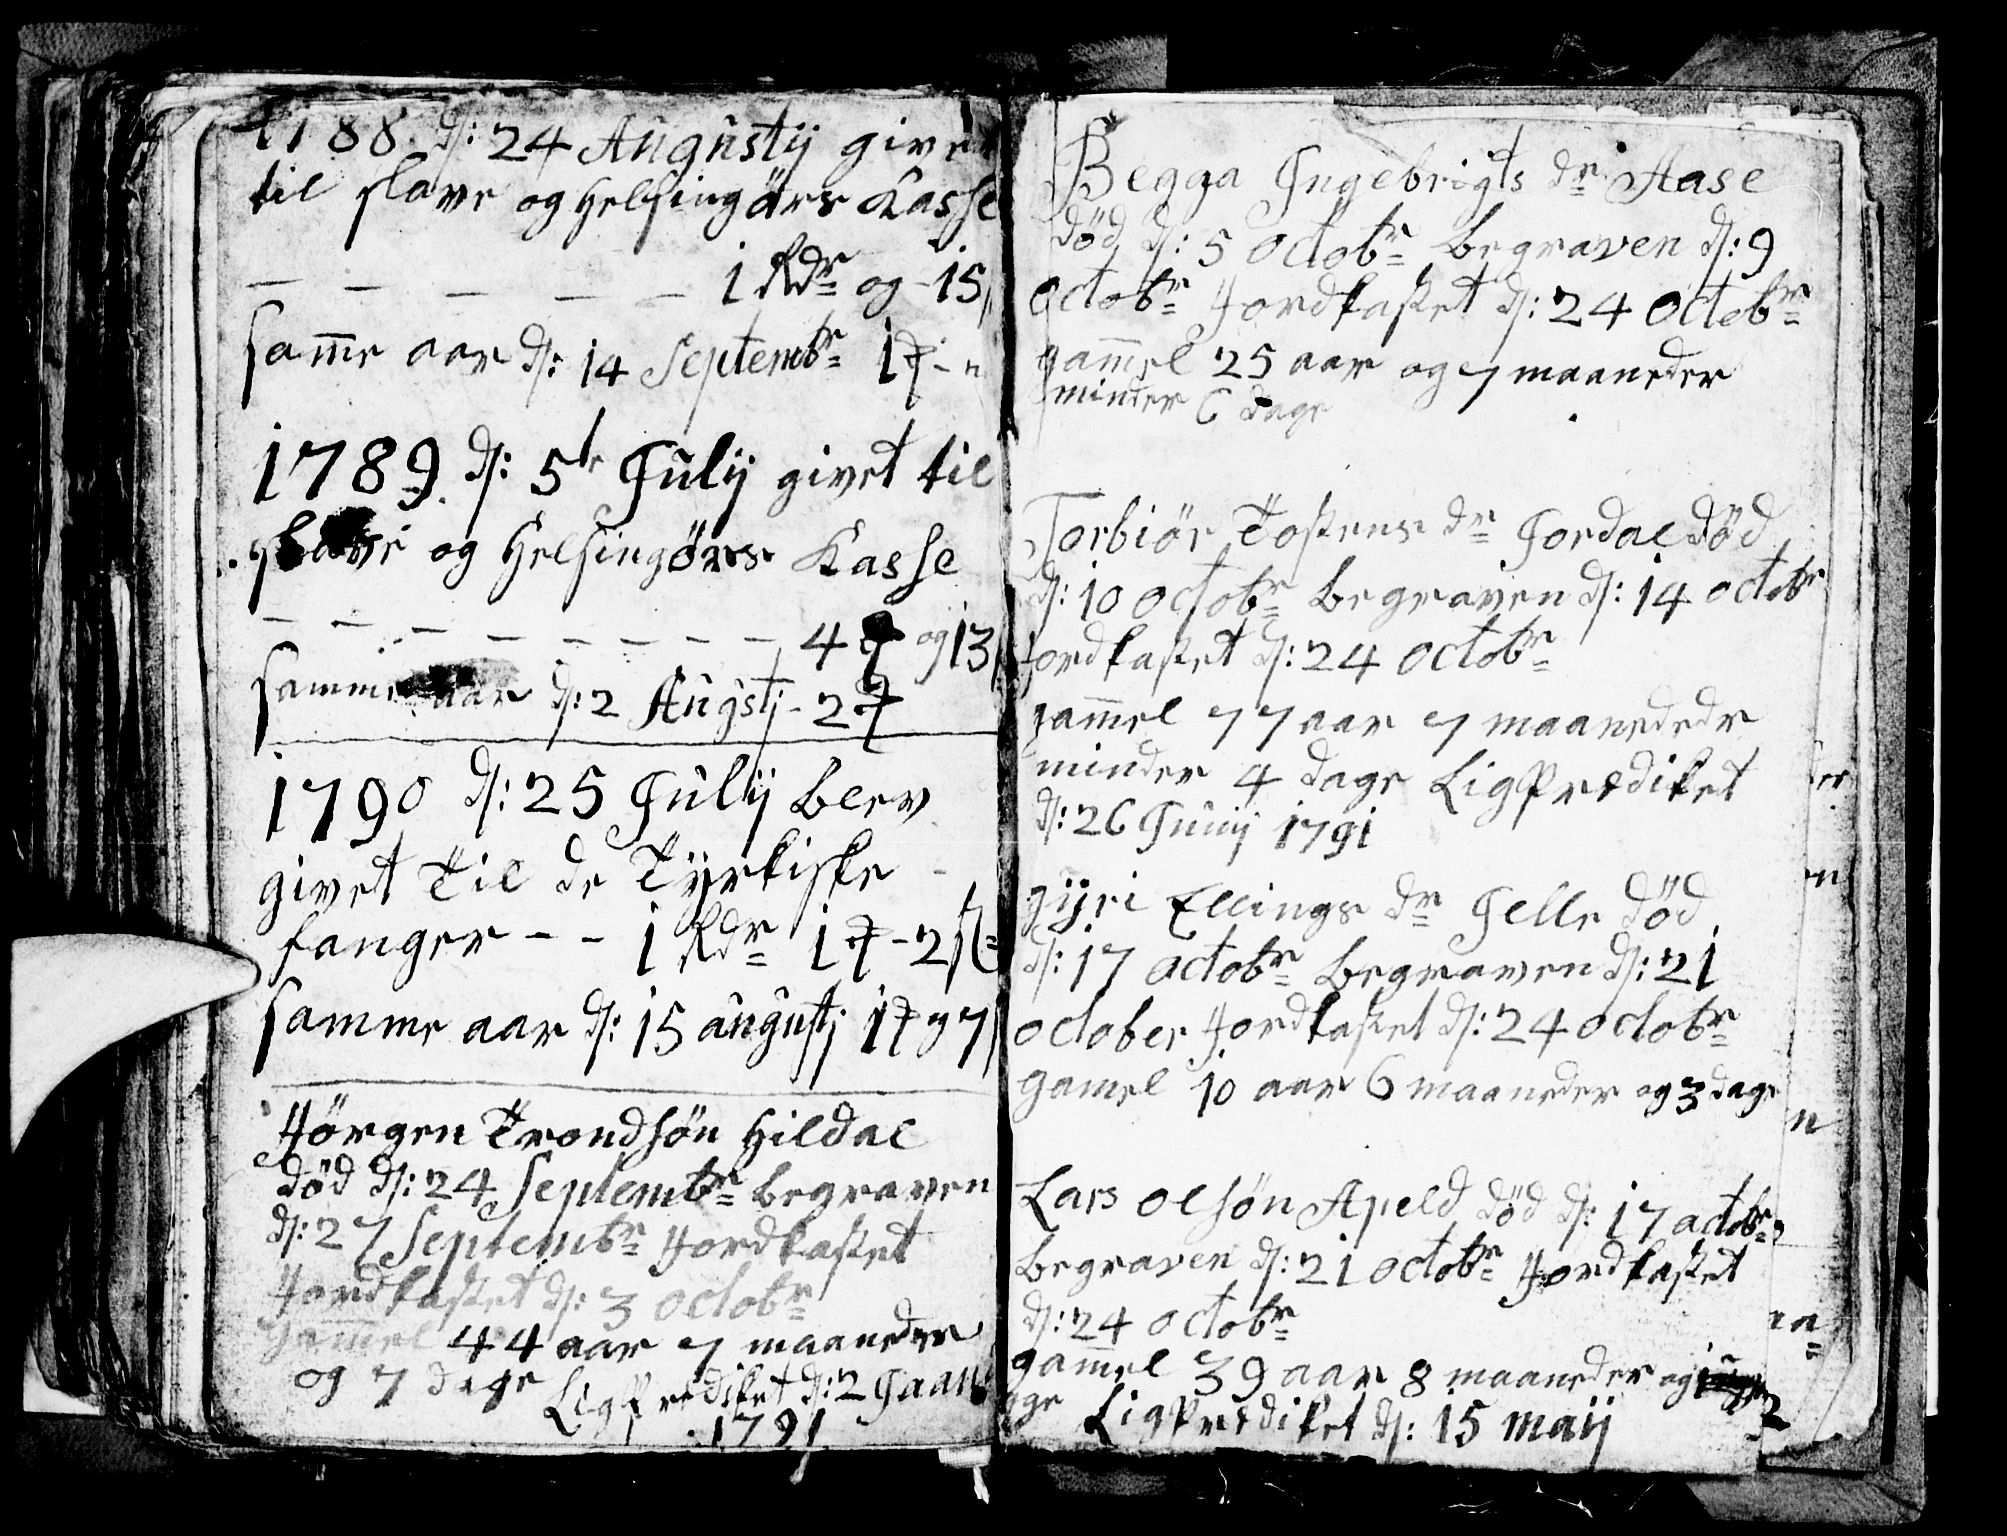 1788 d/: 24 Augustij givet
til slave og Helsingörs Kasse
— — — — — 1 Rdr og - 15
samme aar d/: 14 Septembr 1
1789 d/: 5te Julij givet til
slave og Helsingörs Kasse
— — — — — — — — 4 og 13
samme aar d/: 2 Augstj - 2
1790 d/: 25 Julij blev
givet Til de Tyrkiske
fanger - - 1 Rdr 1 - 2
samme aar d/: 15 augustj 1 7
Hörgen Trondsön Hildal
död d/: 24 Septembr begraven
d/: 27 Septembr Jordkastet
Jordkastet d/: 3 Octobr
gammel 44 aar 7 maaneder
og 7 dage LigPrediket d/: 2
1791
Begga Ingebrigts dr Aase
död d/: 5 Octobr begraven d/: 9
Octobr Jordkastet d/: 24 Octobr
gammel 25 aar og 7 maaneder
minder 6 dage
Torbiör Tostens dr Jordal död
d/: 10 Octobr begraven d/: 14 Octobr
Jordkastet d/: 24 Octobr
gammel 77 aar 7 maanedede
minder 4 dage LigPrediket
d/: 26 Junij 1791
gijri Ellings dr Jelle död
d/: 17 Octobr begraven d/: 21
October Jordkastet d/: 24 Octobr
gamel 10 aar 6 maaneder og 3 dage
Lars Olsön Apeld död d/: 17 octobr
begraven d/: 21 Octobr Jordkastet
d/: 24 Octobr
gammel 39 aar 8 maaneder og
LigPrediket d/: 15 maij